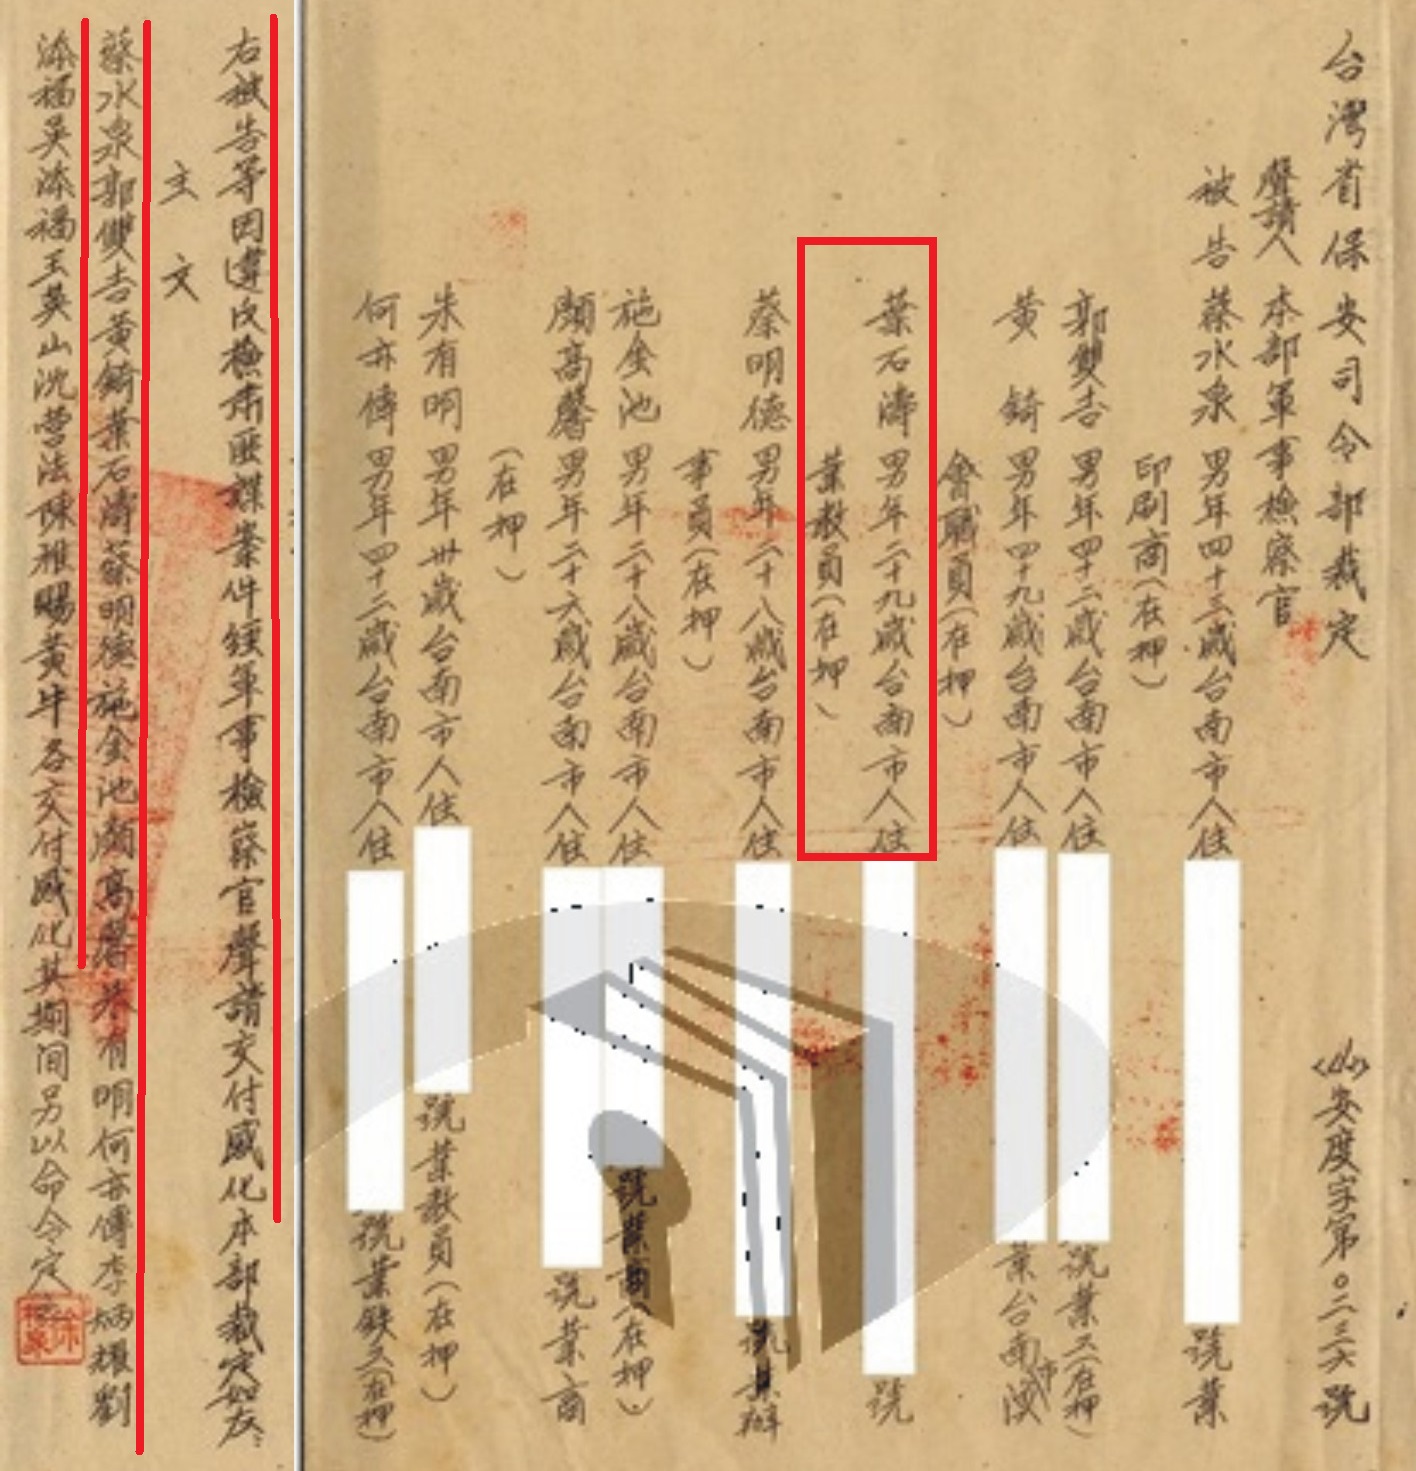 台灣省保安司令部裁定
安度字第〇二三六號
聲請人 本部軍事檢察官
被告 蔡水泉 男年四十三歲台南市人住 號業
印刷商(在押)
郭雙吉 男年四十二歲台南市人住 號業工(在押)
黃 錡 男年四十九歲台南市人住 業台南市漁
會職員(在押)
葉石濤 男年二十九歲台南市人住 號
業教員(在押)
蔡明德 男年二十八歲台南市人住 號業辦
事員(在押)
施金池 男年二十八歲台南市人住 號業商(在押)
顏高馨 男年二十六歲台南市人住 號業商
(在押)
朱有明 男年卅歲台南市人住 號業教員(在押)
何亦傳 男年四十二歲台南市人住 號業鉄工(在押)
右被告等因違反檢肅匪諜案件經軍事檢察官聲請交付感化本部裁定如左:
主 文
蔡水泉郭雙吉黃錡葉石濤蔡明德施金池顏高馨朱有明何亦傳李炳輝劉
添福吳添福王英山沈營法陳雅賜黃牛各交付感化其期间另以命令定